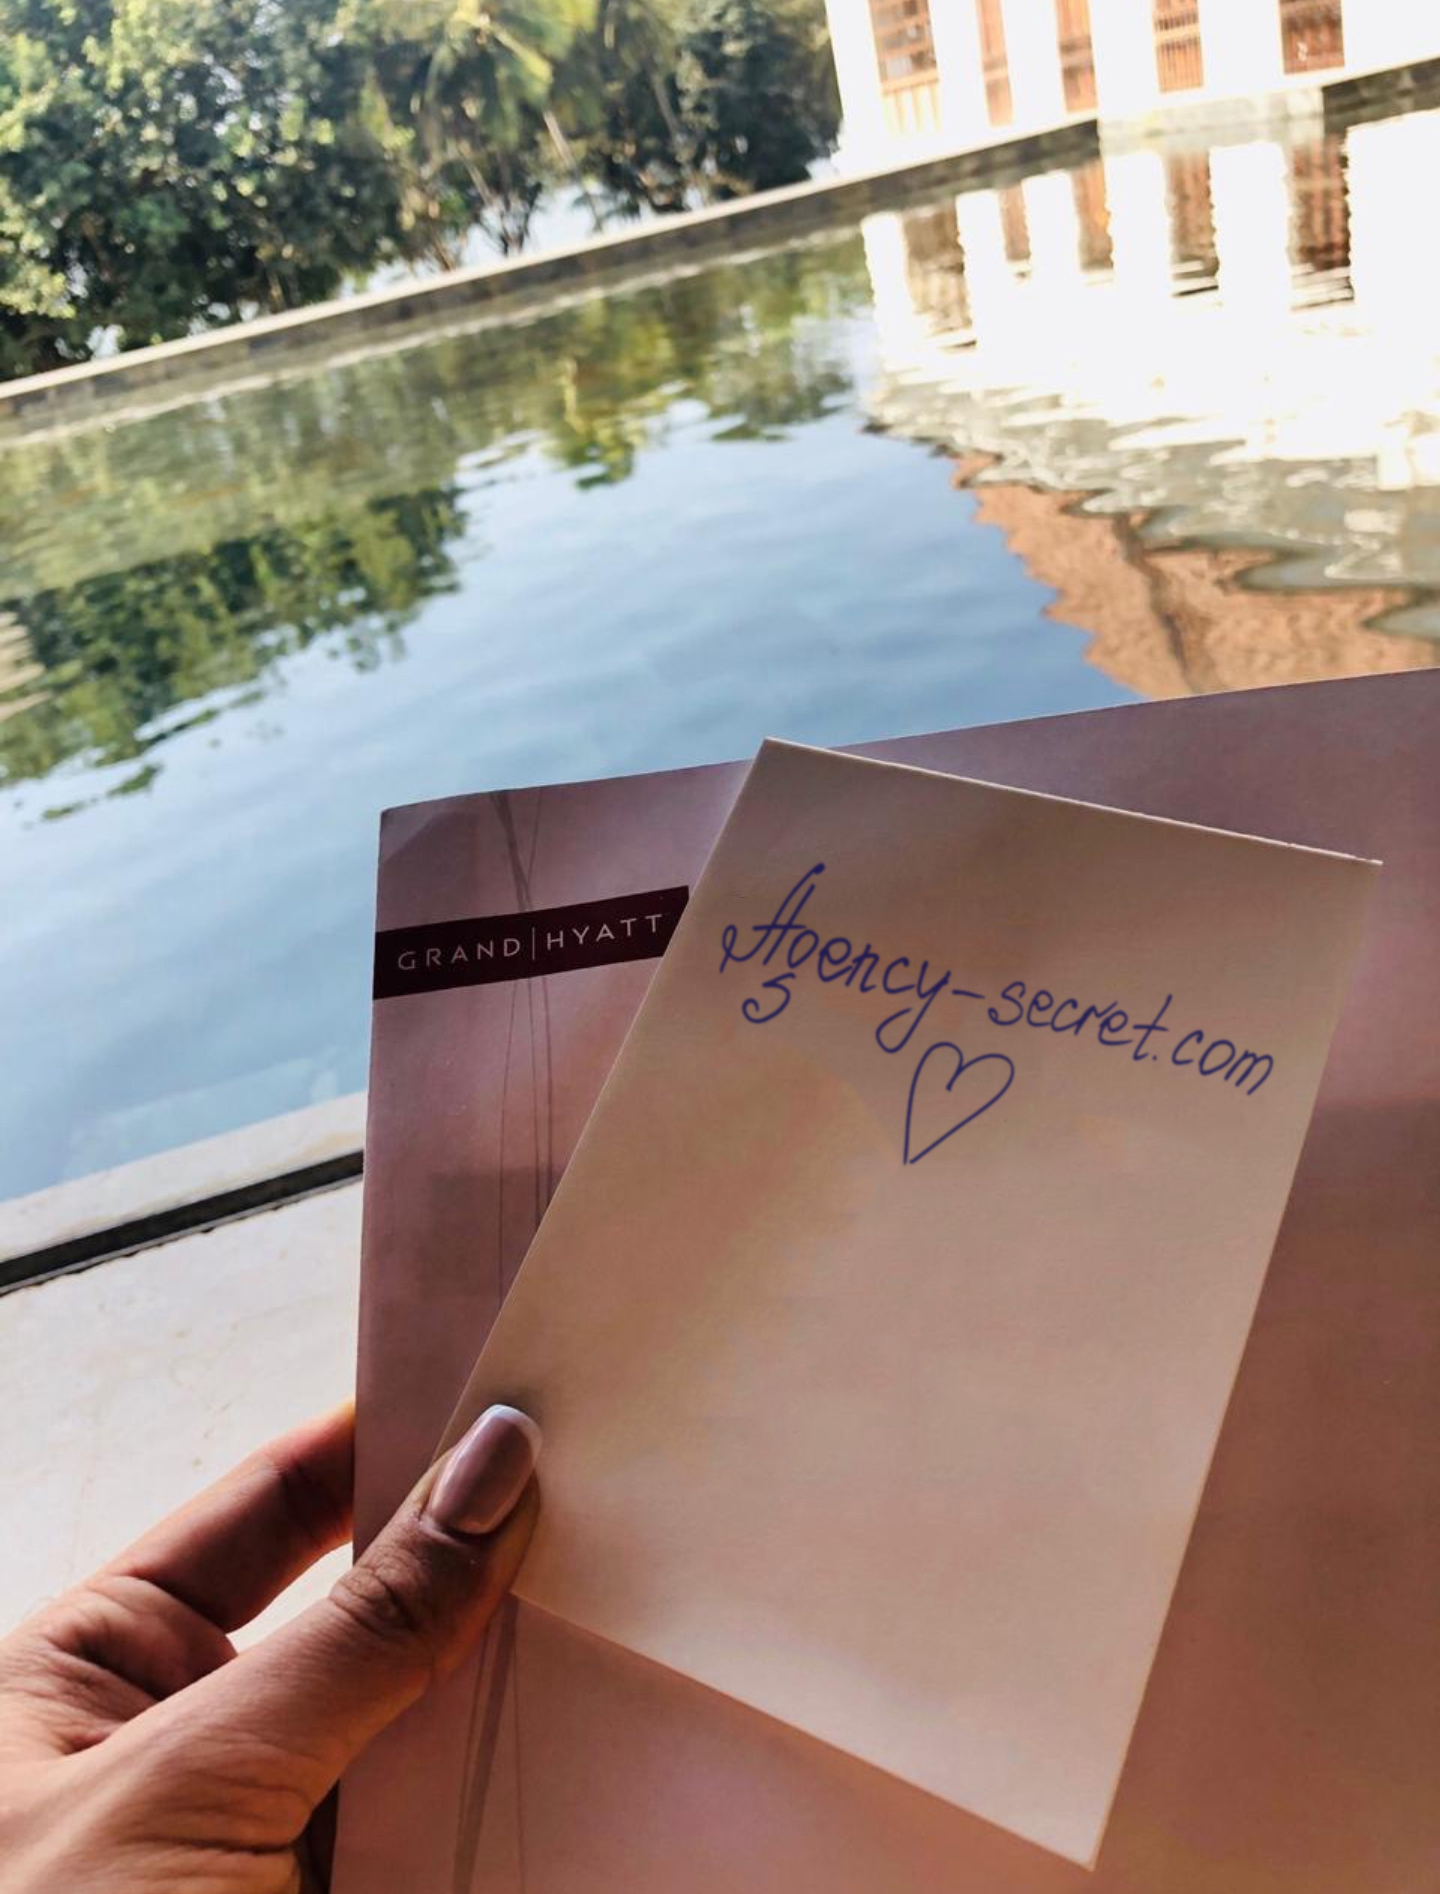 GRAND|HYATT
Agency-secret.com